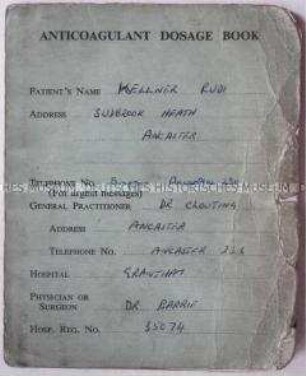 ANTICOAGULANT DOSAGE BOOK
PATIENT'S NAME KELLNER RUDI
ADDRESS SUDBROOK HEATH
ANCASTER
TELEPHONE NO.
(For urgent messages)
GENERAL PRACTITIONER DR CLOUTING
ADDRESS ANCASTER
TELEPHONE NO. ANCASTER
HOSPITAL GRANTHAM
PHYSICIAN OR
SURGEON DR BARRIE
HOSP. REG. NO. 35074